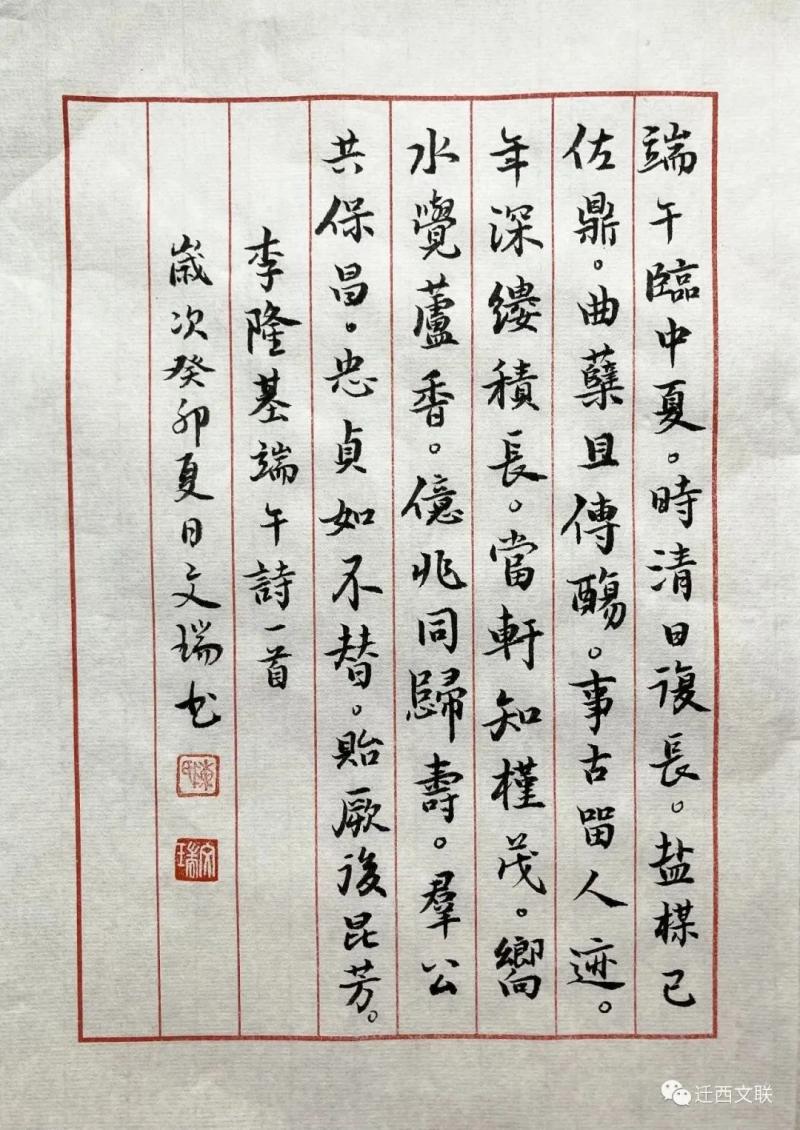 端午臨中夏。時清日復長。盐楳已
佐鼎。曲蘖且傳觴。事古留人迹。
年深縷積長。當軒知槿茂。嚮
水覺蘆香。億兆同歸壽。羣公
共保昌。忠貞如不替。貽厥後昆芳。
李隆基端午詩一首
歲次癸卯夏日文瑞书
陳氏
文瑞
迁西文联